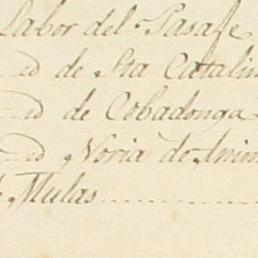 Labor del Pasaje
id de Sta Catalin
id de Cobadonga
id Noria de Anim
Mulas